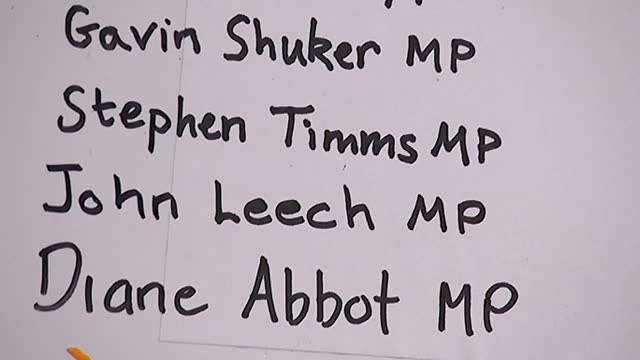 Gavin Shuker MP
Stephen Timms MP
John Leech MP
Diane Abbot MP